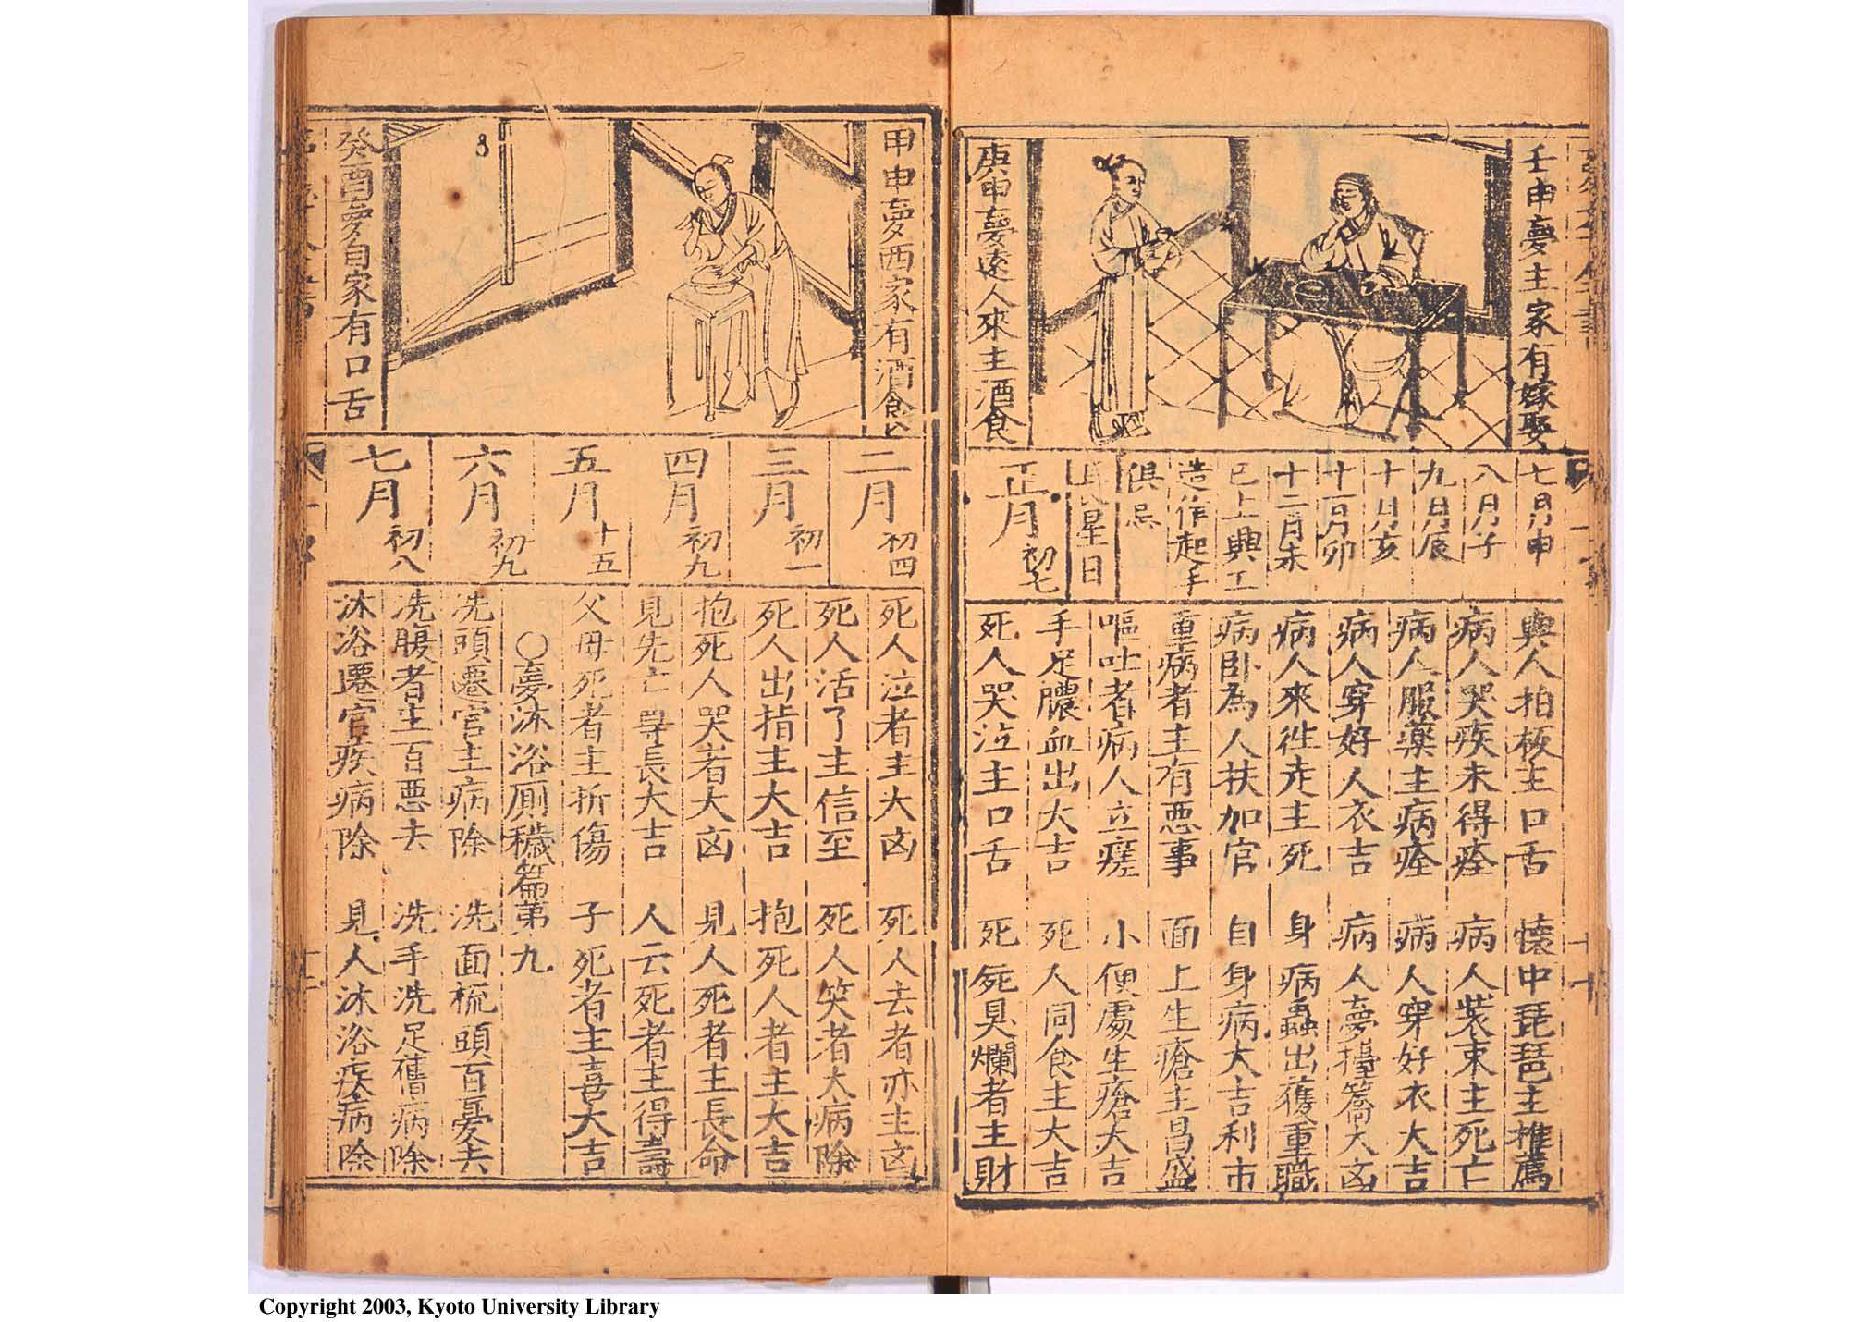 壬申夢主家有嫁娶
庚申夢遠人來主酒食
七月申
八月子
九月辰
十月亥
十一月卯
十二月未
已上興工
造作起手
俱忌
星日
正月初七
與人拍板主口舌 懷中琵琶主推薦
病人哭疾未得痊 病人裝束主死亡
病人服藥主病痊 病人穿好衣大吉
病人穿好人衣吉 病人夢擡簥大凶
病人來徃走主死 身病蟲出獲重職
病卧為人扶加官 自身病大吉利市
重病者主有惡事 面上生瘡主昌盛
嘔吐者病人立瘥 小便處生瘡大吉
手足膿血出大吉 死人同食主大吉
死人哭泣主口舌 死屍臭爛者主財
甲申夢西家有酒食
癸酉夢自家有口舌
二月初四
三月初一
四月初九
五月十五
六月初九
七月初八
死人泣者主大凶 死人去者亦主凶
死人活了主信至 死人笑者大病除
死人出指主大吉 抱死人者主大吉
抱死人哭者大凶 見人死者主長命
見先亡尊長大吉 人云死者主得壽
父母死者主折傷 子死者主喜大吉
○夢沐浴厠穢篇第九
洗頭遷官主病除 洗面梳頭百憂去
洗腹者主百惡去 洗手洗足舊病除
沐浴遷官疾病除 見人沐浴疾病除
Copyright 2003, Kyoto University Library